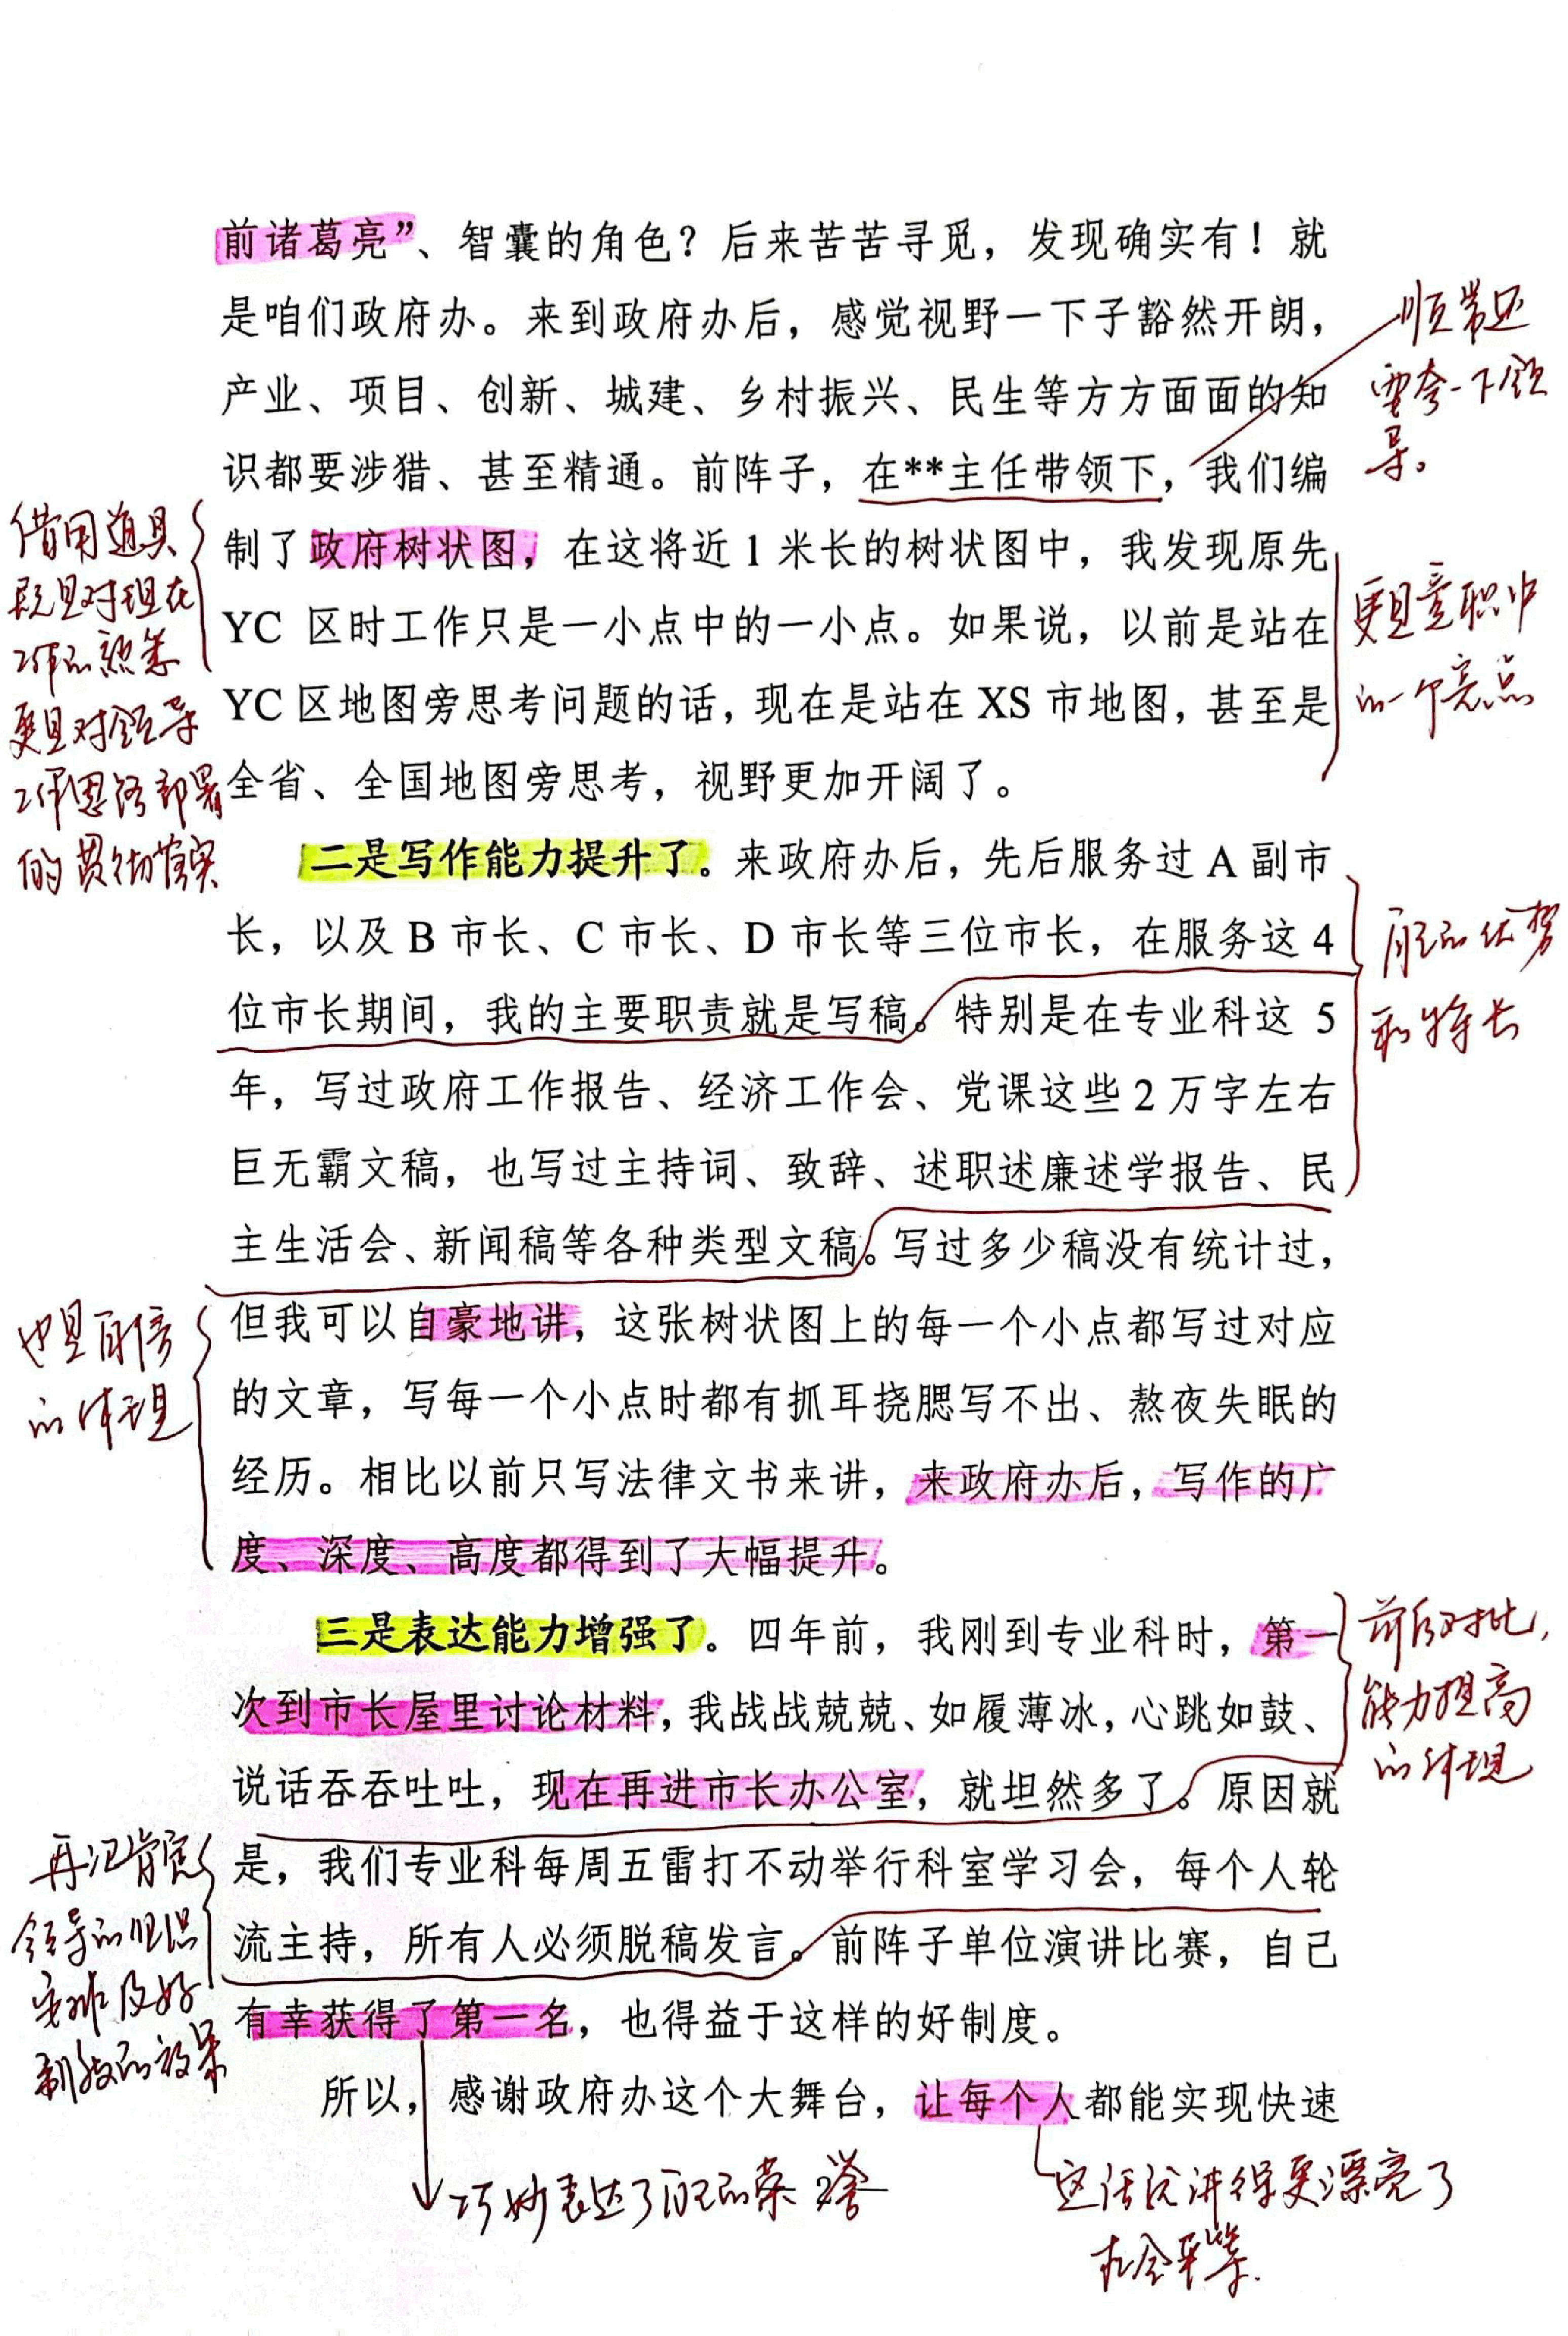 前诸葛亮”、智囊的角色？后来苦苦寻觅，发现确实有！就
是咱们政府办。来到政府办后，感觉视野一下子豁然开朗，
产业、项目、创新、城建、乡村振兴、民生等方方面面的知
识都要涉猎、甚至精通。前阵子，在**主任带领下，我们编
制了政府树状图，在这将近1米长的树状图中，我发现原先
YC 区时工作只是一小点中的一小点。如果说，以前是站在
YC区地图旁思考问题的话，现在是站在XS市地图，甚至是
全省、全国地图旁思考，视野更加开阔了。
二是写作能力提升了。来政府办后，先后服务过A副市
长，以及B市长、C市长、D市长等三位市长，在服务这4
位市长期间，我的主要职责就是写稿。特别是在专业科这 5
年，写过政府工作报告、经济工作会、党课这些2万字左右
巨无霸文稿，也写过主持词、致辞、述职述廉述学报告、民
主生活会、新闻稿等各种类型文稿。写过多少稿没有统计过，
但我可以自豪地讲，这张树状图上的每一个小点都写过对应
的文章，写每一个小点时都有抓耳挠腮写不出、熬夜失眠的
经历。相比以前只写法律文书来讲，来政府办后，写作的广
度、深度、高度都得到了大幅提升。
三是表达能力增强了。四年前，我刚到专业科时，第一
次到市长屋里讨论材料，我战战兢兢、如履薄冰，心跳如鼓、
说话吞吞吐吐，现在再进市长办公室，就坦然多了。原因就
是，我们专业科每周五雷打不动举行科室学习会，每个人轮
流主持，所有人必须脱稿发言。前阵子单位演讲比赛，自己
有幸获得了第一名，也得益于这样的好制度。
所以，感谢政府办这个大舞台，让每个人都能实现快速
2
顺带还
要夸一下领
导。
借用道具
既是对现在
工作的熟悉
更是对领导
工作思路部署
的贯彻落实
更是竞职中
的一个亮点
自己的优势
和特长
也是自信
的体现
前后对比，
能力提高
的体现
再次肯定
领导的
安排及好
制度的效果
巧妙表达了自己的荣誉
这话说讲得更漂亮了